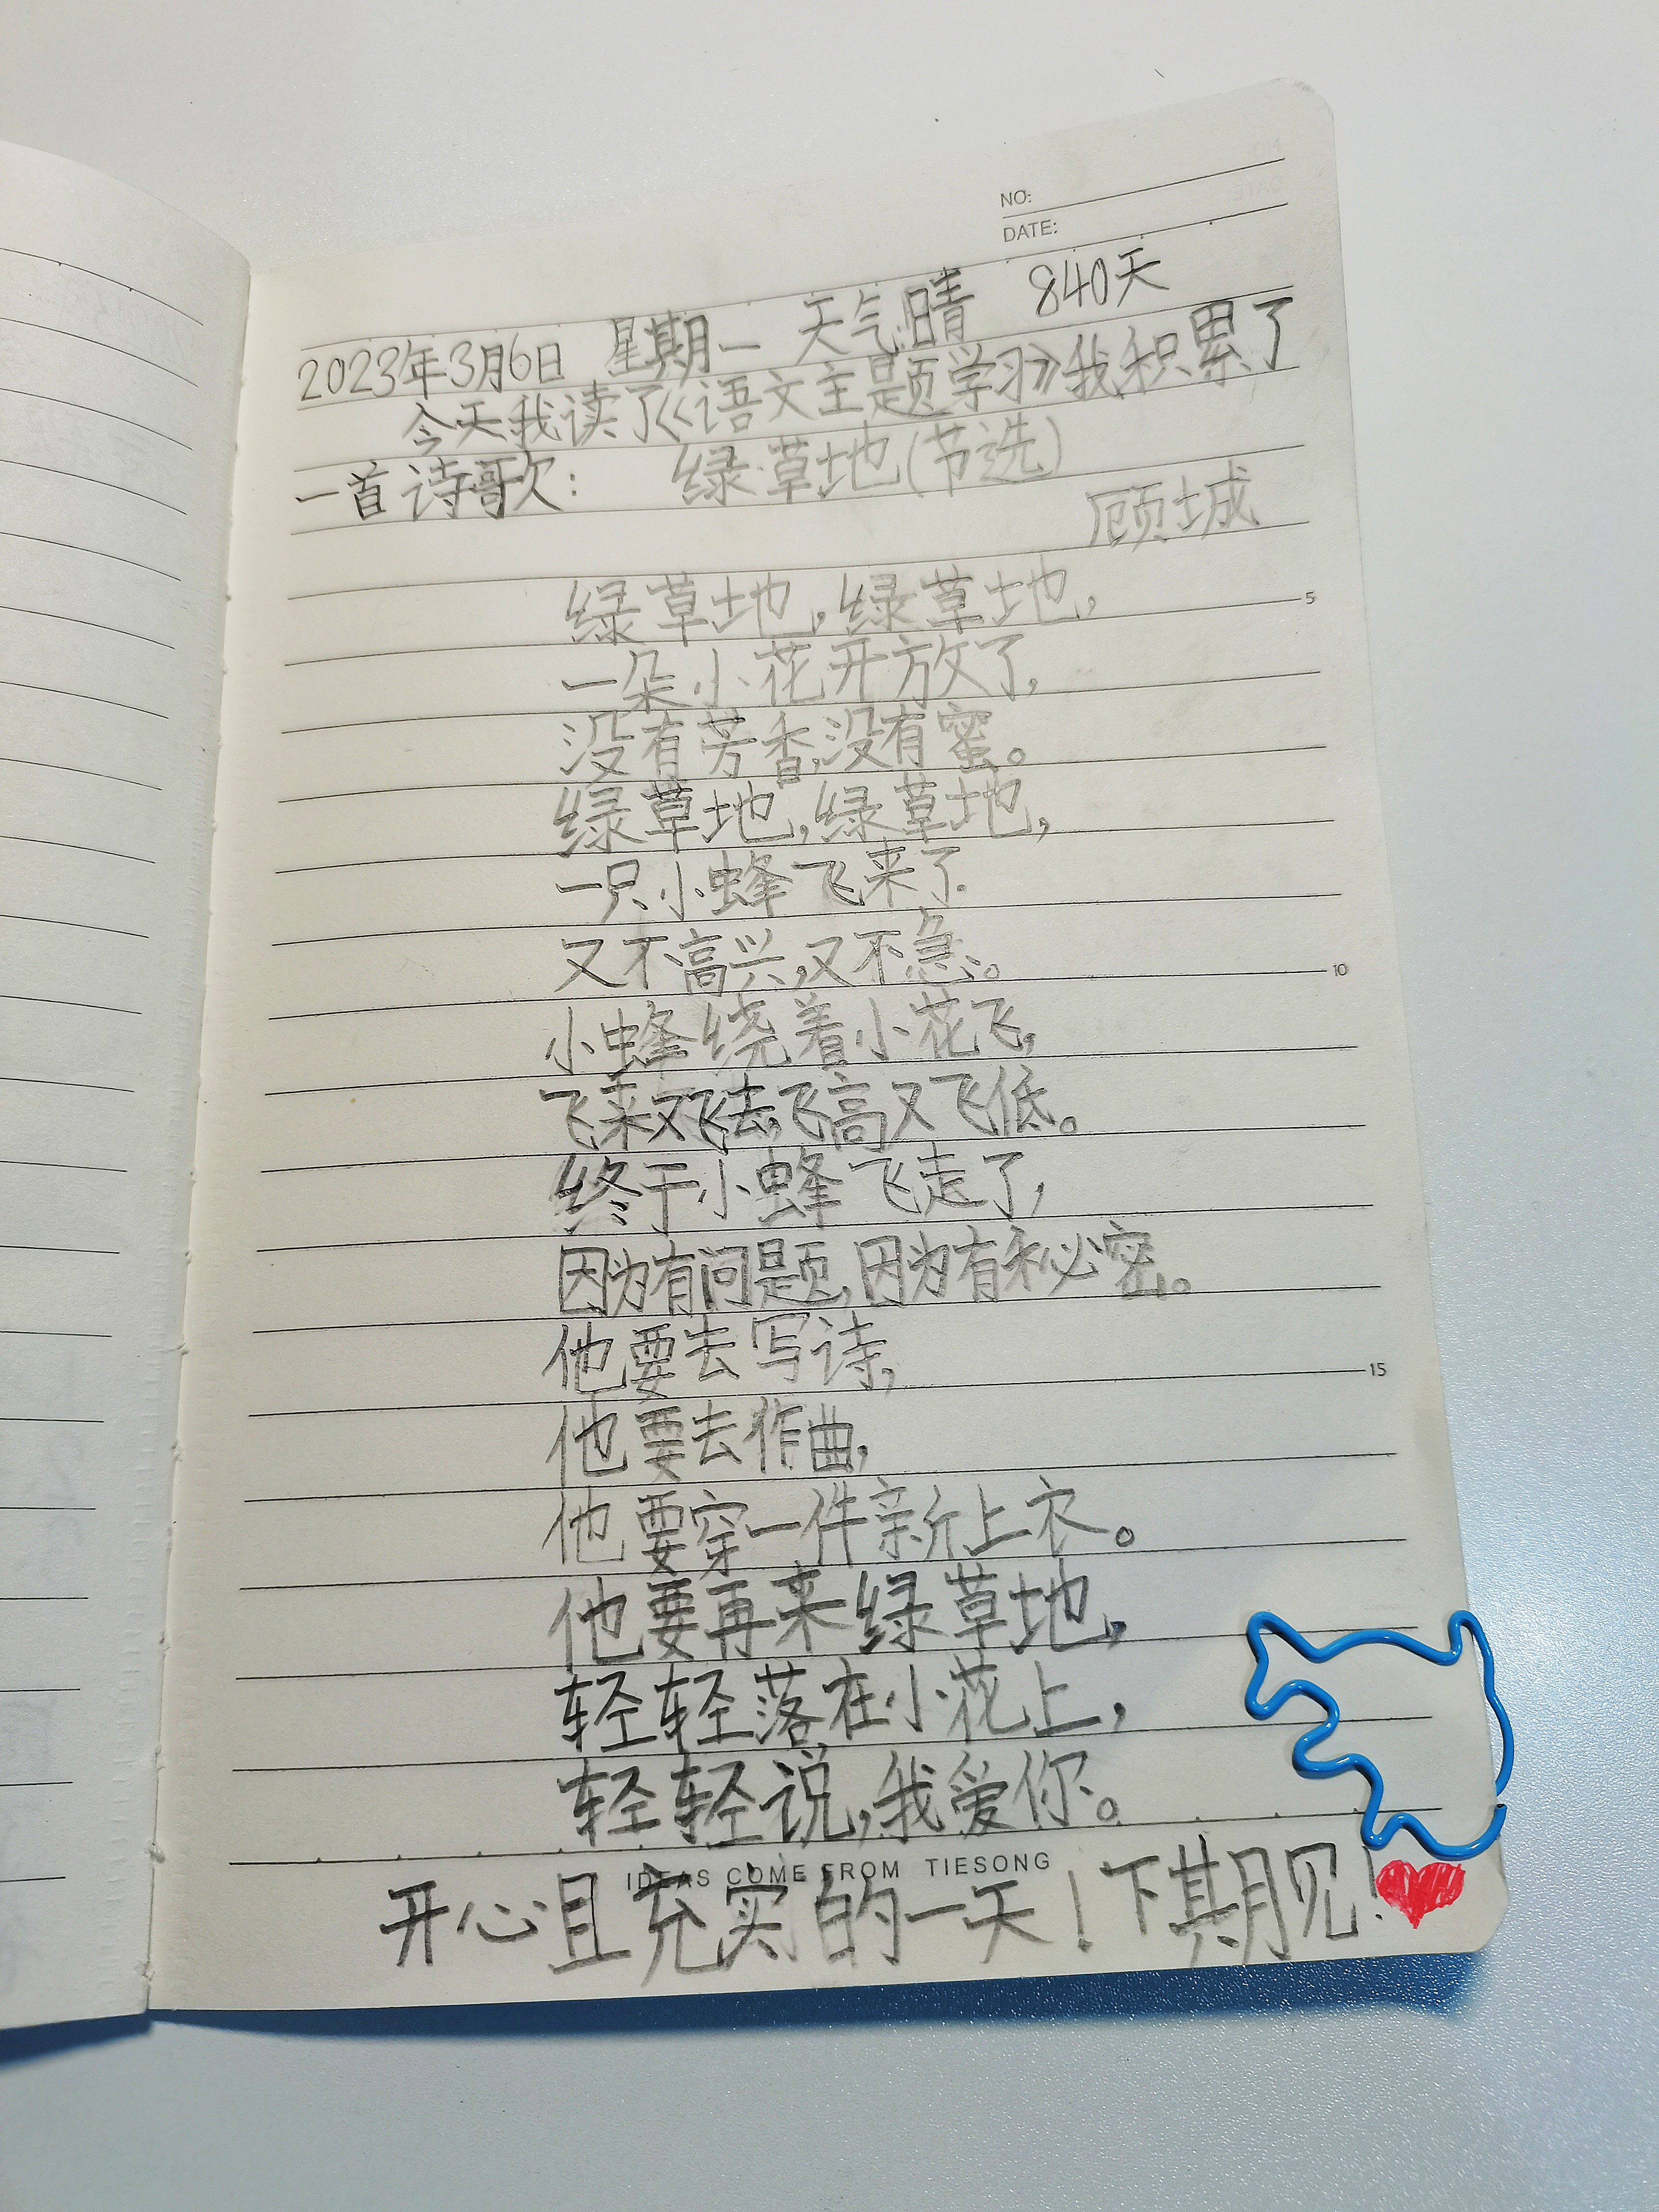 NO:
DATE:
2023年3月6日 星期一 天气晴 840天
今天我读了《语文主题学习》我积累了
一首诗歌: 绿草地(节选)
顾城
绿草地,绿草地,
5
一朵小花开放了,
没有芳香,没有蜜。
绿草地,绿草地,
一只小蜂飞来了.
又不高兴,又不急。
10
小蜂绕着小花飞,
飞来又飞去,飞高又飞低。
终于小蜂飞走了,
因为有问题,因为有秘密。
他要去写诗,
15
他要去作曲,
他要穿一件新上衣。
他要再来绿草地,
轻轻落在小花上,
轻轻说,我爱你。
IDEAS COME FROM TIESONG
开心且充实的一天!下期见!